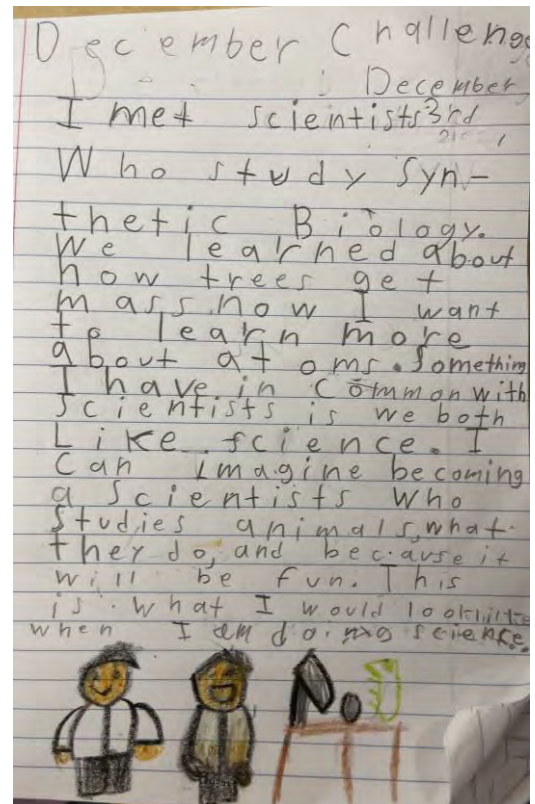 December Challeng
December
I met scientists 3rd
Who study Syn-
thetic Biology.
We learned about
how trees get
mass. now I want
to learn more
about atoms. Something
I have in common with
Scientists is we both
Like science. I
can imagine becoming
a Scientists who
Studies animals, what
they do, and because it
will be fun. This
is what I would look
when I am doing science.